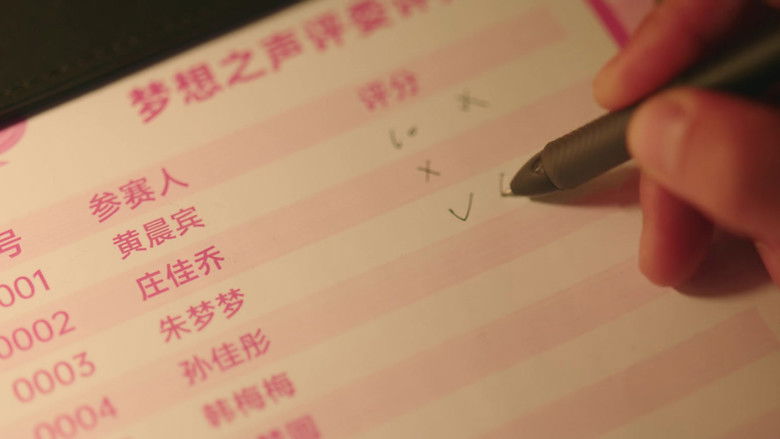 梦想之声评委评
号 参赛人 评分
001 黄晨宾 60 ×
0002 庄佳乔 ×
0003 朱梦梦 √
0004 孙佳彤
韩梅梅